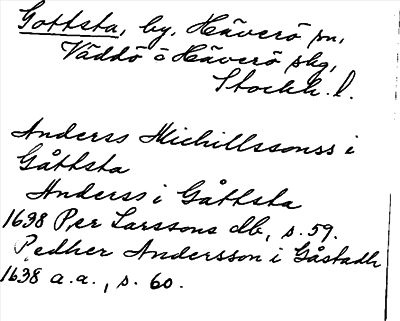 Gottsta, by, Häverö sn,
Väddö o Häverö skg,
Stockh. l.
Anderss Michillssonss i
Gåttsta
Anderss i Gåttsta
1638 Per Larssons db, s. 59.
Pedher Andersson i Gåstadh
1638 a.a., s. 60.